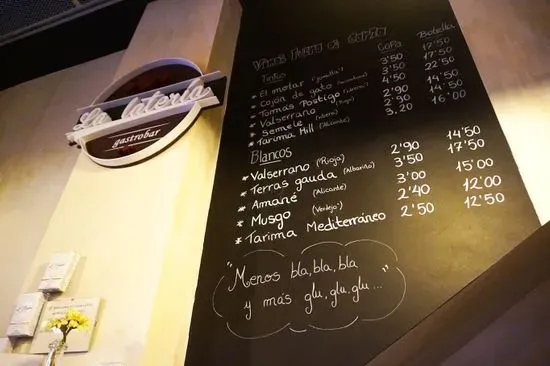 La latería
gastrobar
Copa Botella
Tintos 3'50 17'50
* El metar (Jumilla) 3'50 17'50
* Cojón de gato 4'50 22'50
* Tomás Postigo (Ribera) 
* Valserrano (Rioja) 2'90 14'50
* Semele (Ribera) 2'90 14'50
* Tarima Hill (Alicante) 3,20 16'00
Blancos
* Valserrano (Rioja) 2'90 14'50
* Terras gauda (Albariño) 3'50 17'50
* Amané (Alicante) 3'00 15'00
* Musgo (Verdejo) 2'40 12'00
* Tarima Mediterráneo 2'50 12'50
"Menos bla, bla, bla
y más glu, glu, glu..."